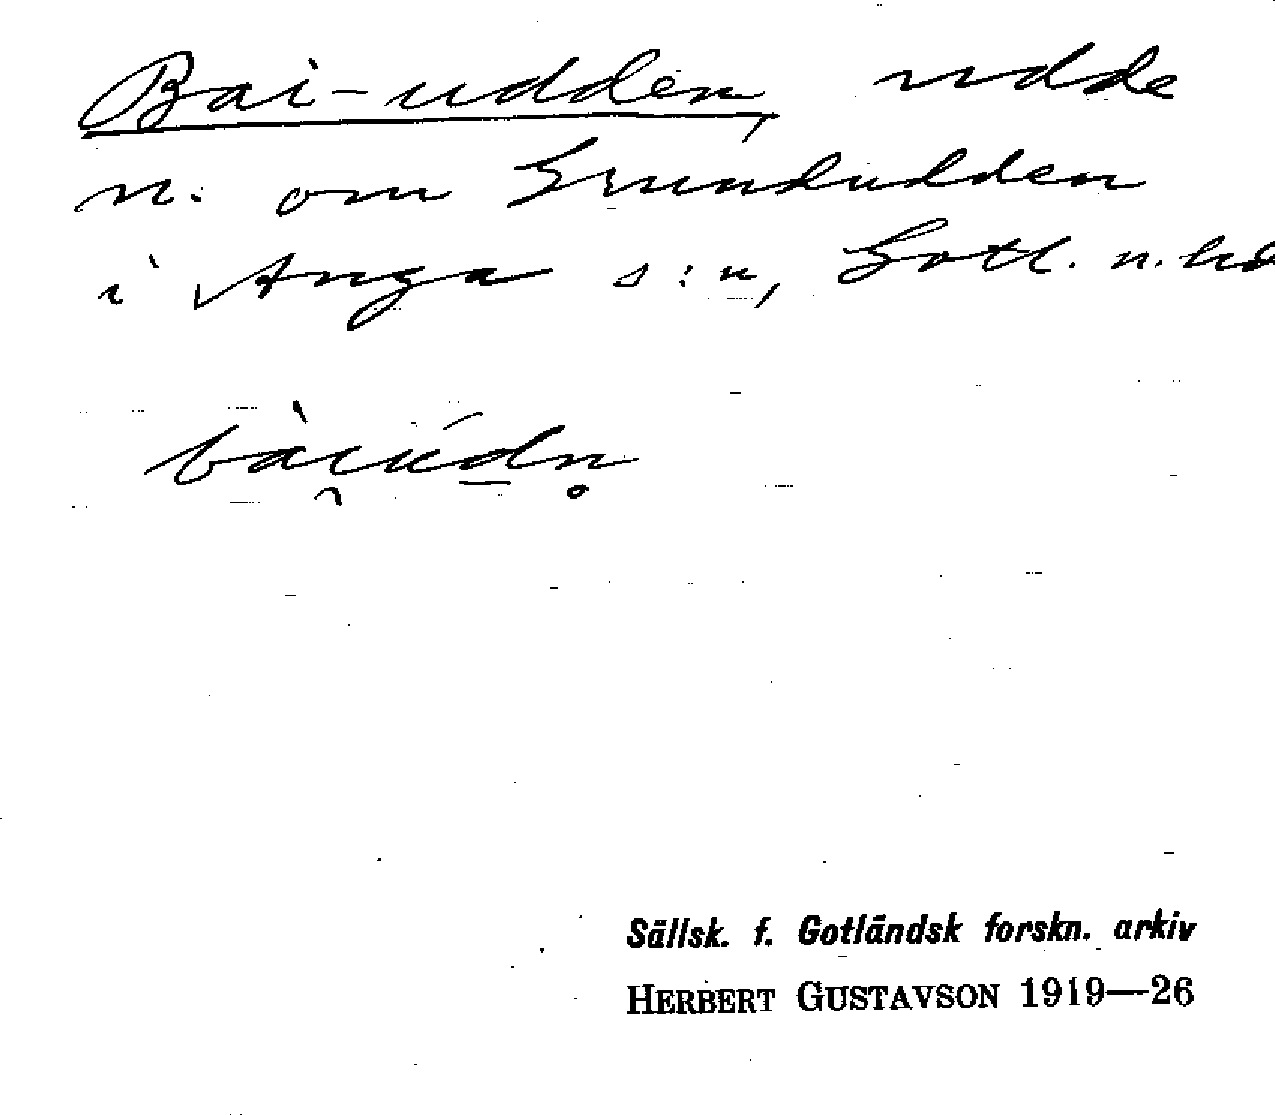 Bai-udden, udde
n. om Grundudden
i Anga s:n, Gotl. n. hd
bài̯úd̲n̥
Sällsk. f. Gotländsk forskn. arkiv
HERBERT GUSTAVSON 1919—26